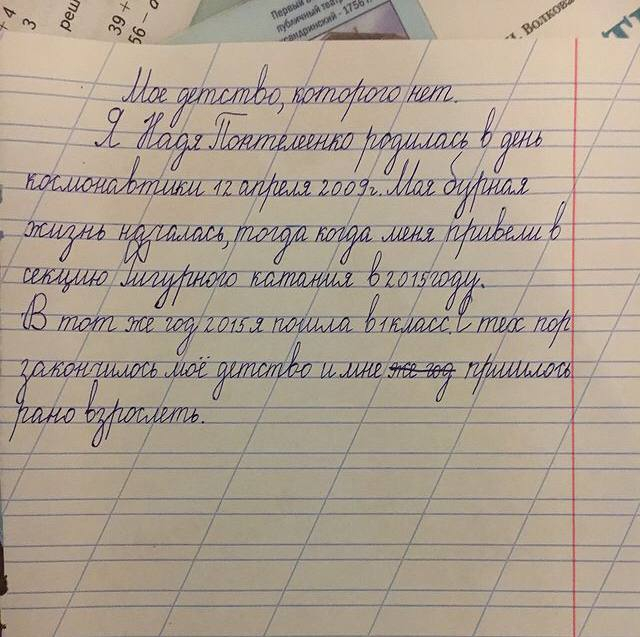 + 4
3
реш
39 +
56 - а
Первый
публичный театр
ксандринский - 1756 г.
. Волкова
Мое детство, которого нет.
Я Надя Понтелеенко родилась в день
космонавтики 12 апреля 2009г. Моя бурная
жизнь началась, тогда когда меня привели в
секцию Фигурного катания в 2015 году.
В тот же год 2015 я пошла в 1 класс. С тех пор
закончилось моё детство и мне же год пришлось
рано взрослеть.